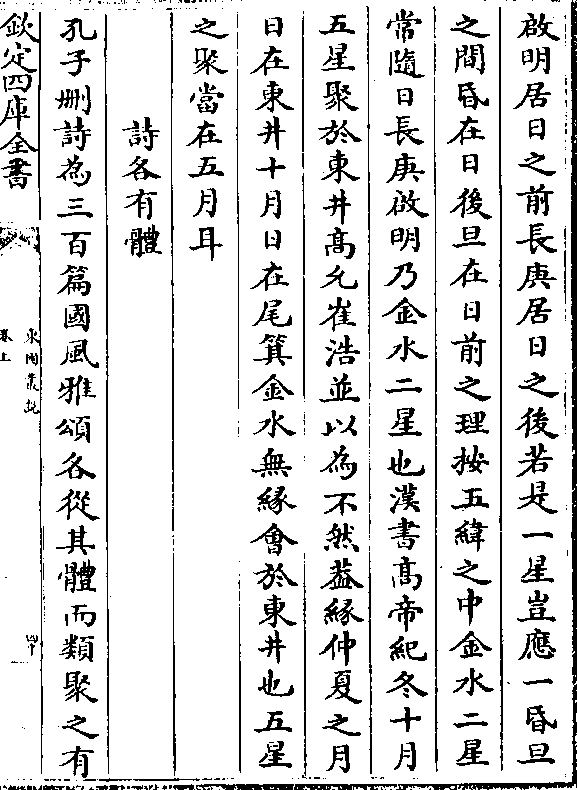 啟明居日之前長庚居日之後若是一星豈應一昏旦
之間昏在日後旦在日前之理按五緯之中金水二星
常隨日長庚啟明乃金水二星也漢書髙帝紀冬十月
五星聚於東井髙允崔浩並以為不然葢緣仲夏之月
日在東井十月日在尾箕金水無緣會於東井也五星
之聚當在五月耳
詩各有體
孔子刪詩為三百篇國風雅頌各從其體而類聚之有
欽定四庫全書
東園叢說
卷上
四十